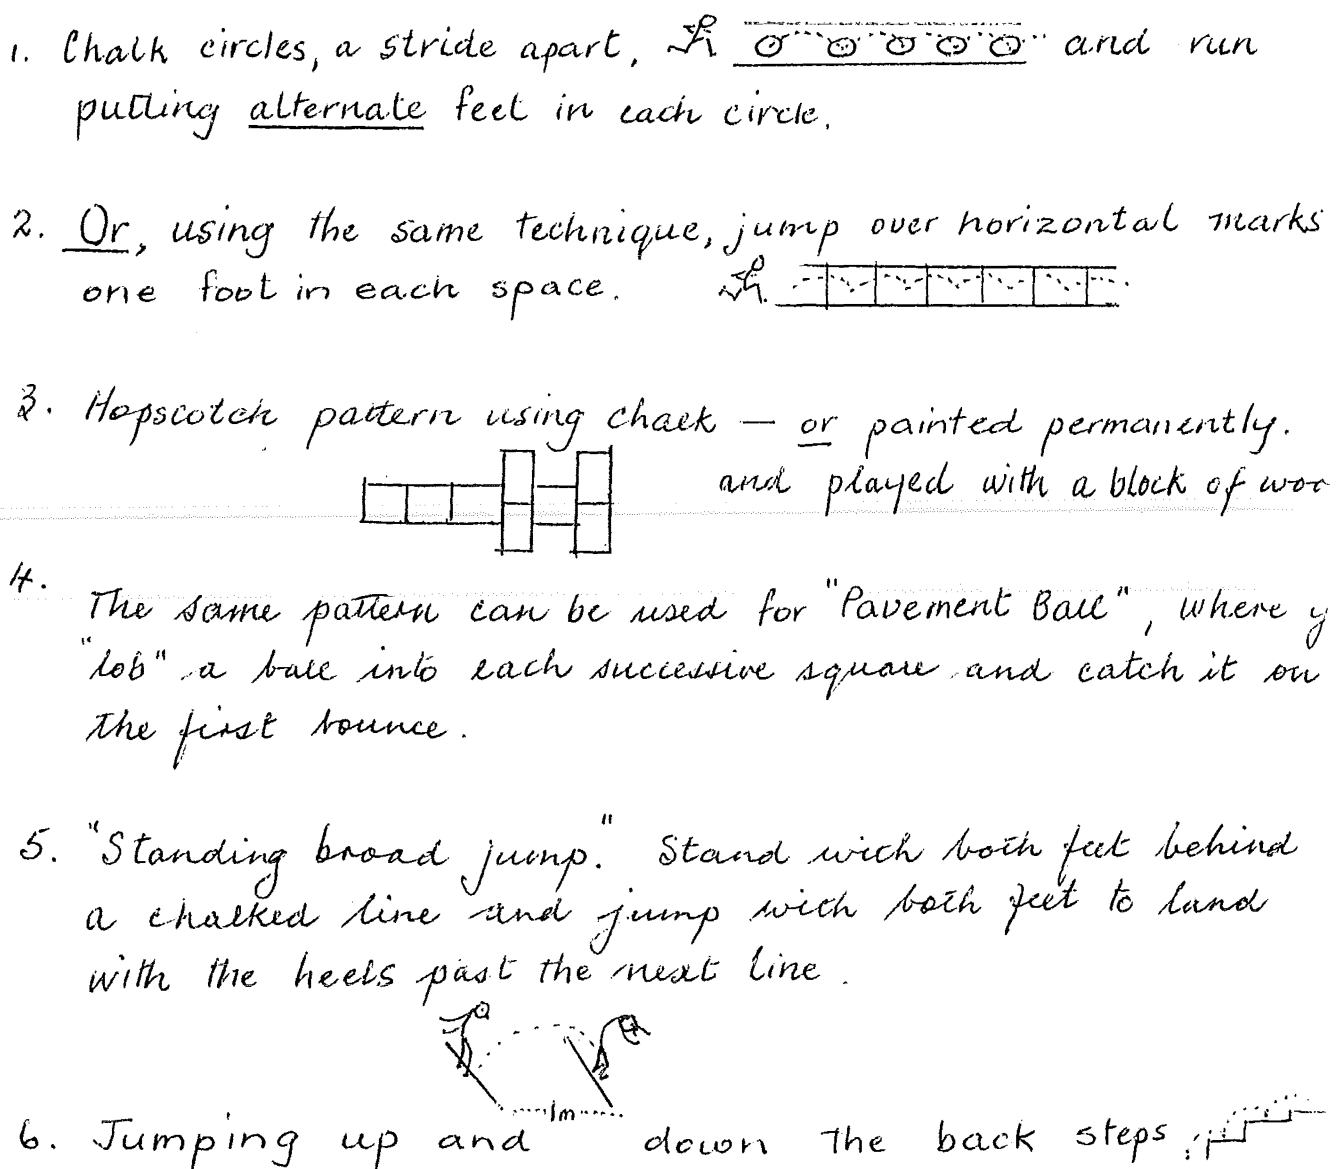 1. Chalk circles, a stride apart, and run
putting alternate feet in each circle.
2. Or, using the same technique, jump over horizontal marks
one foot in each space.
3. Hopscotch pattern using chalk — or painted permanently.
and played with a block of woo
4.
The same pattern can be used for "Pavement Ball", where y
"lob" a ball into each successive square and catch it on
the first bounce.
5. "Standing broad jump." Stand with both feet behind
a chalked line and jump with both feet to land
with the heels past the next line.
1m
6. Jumping up and down the back steps